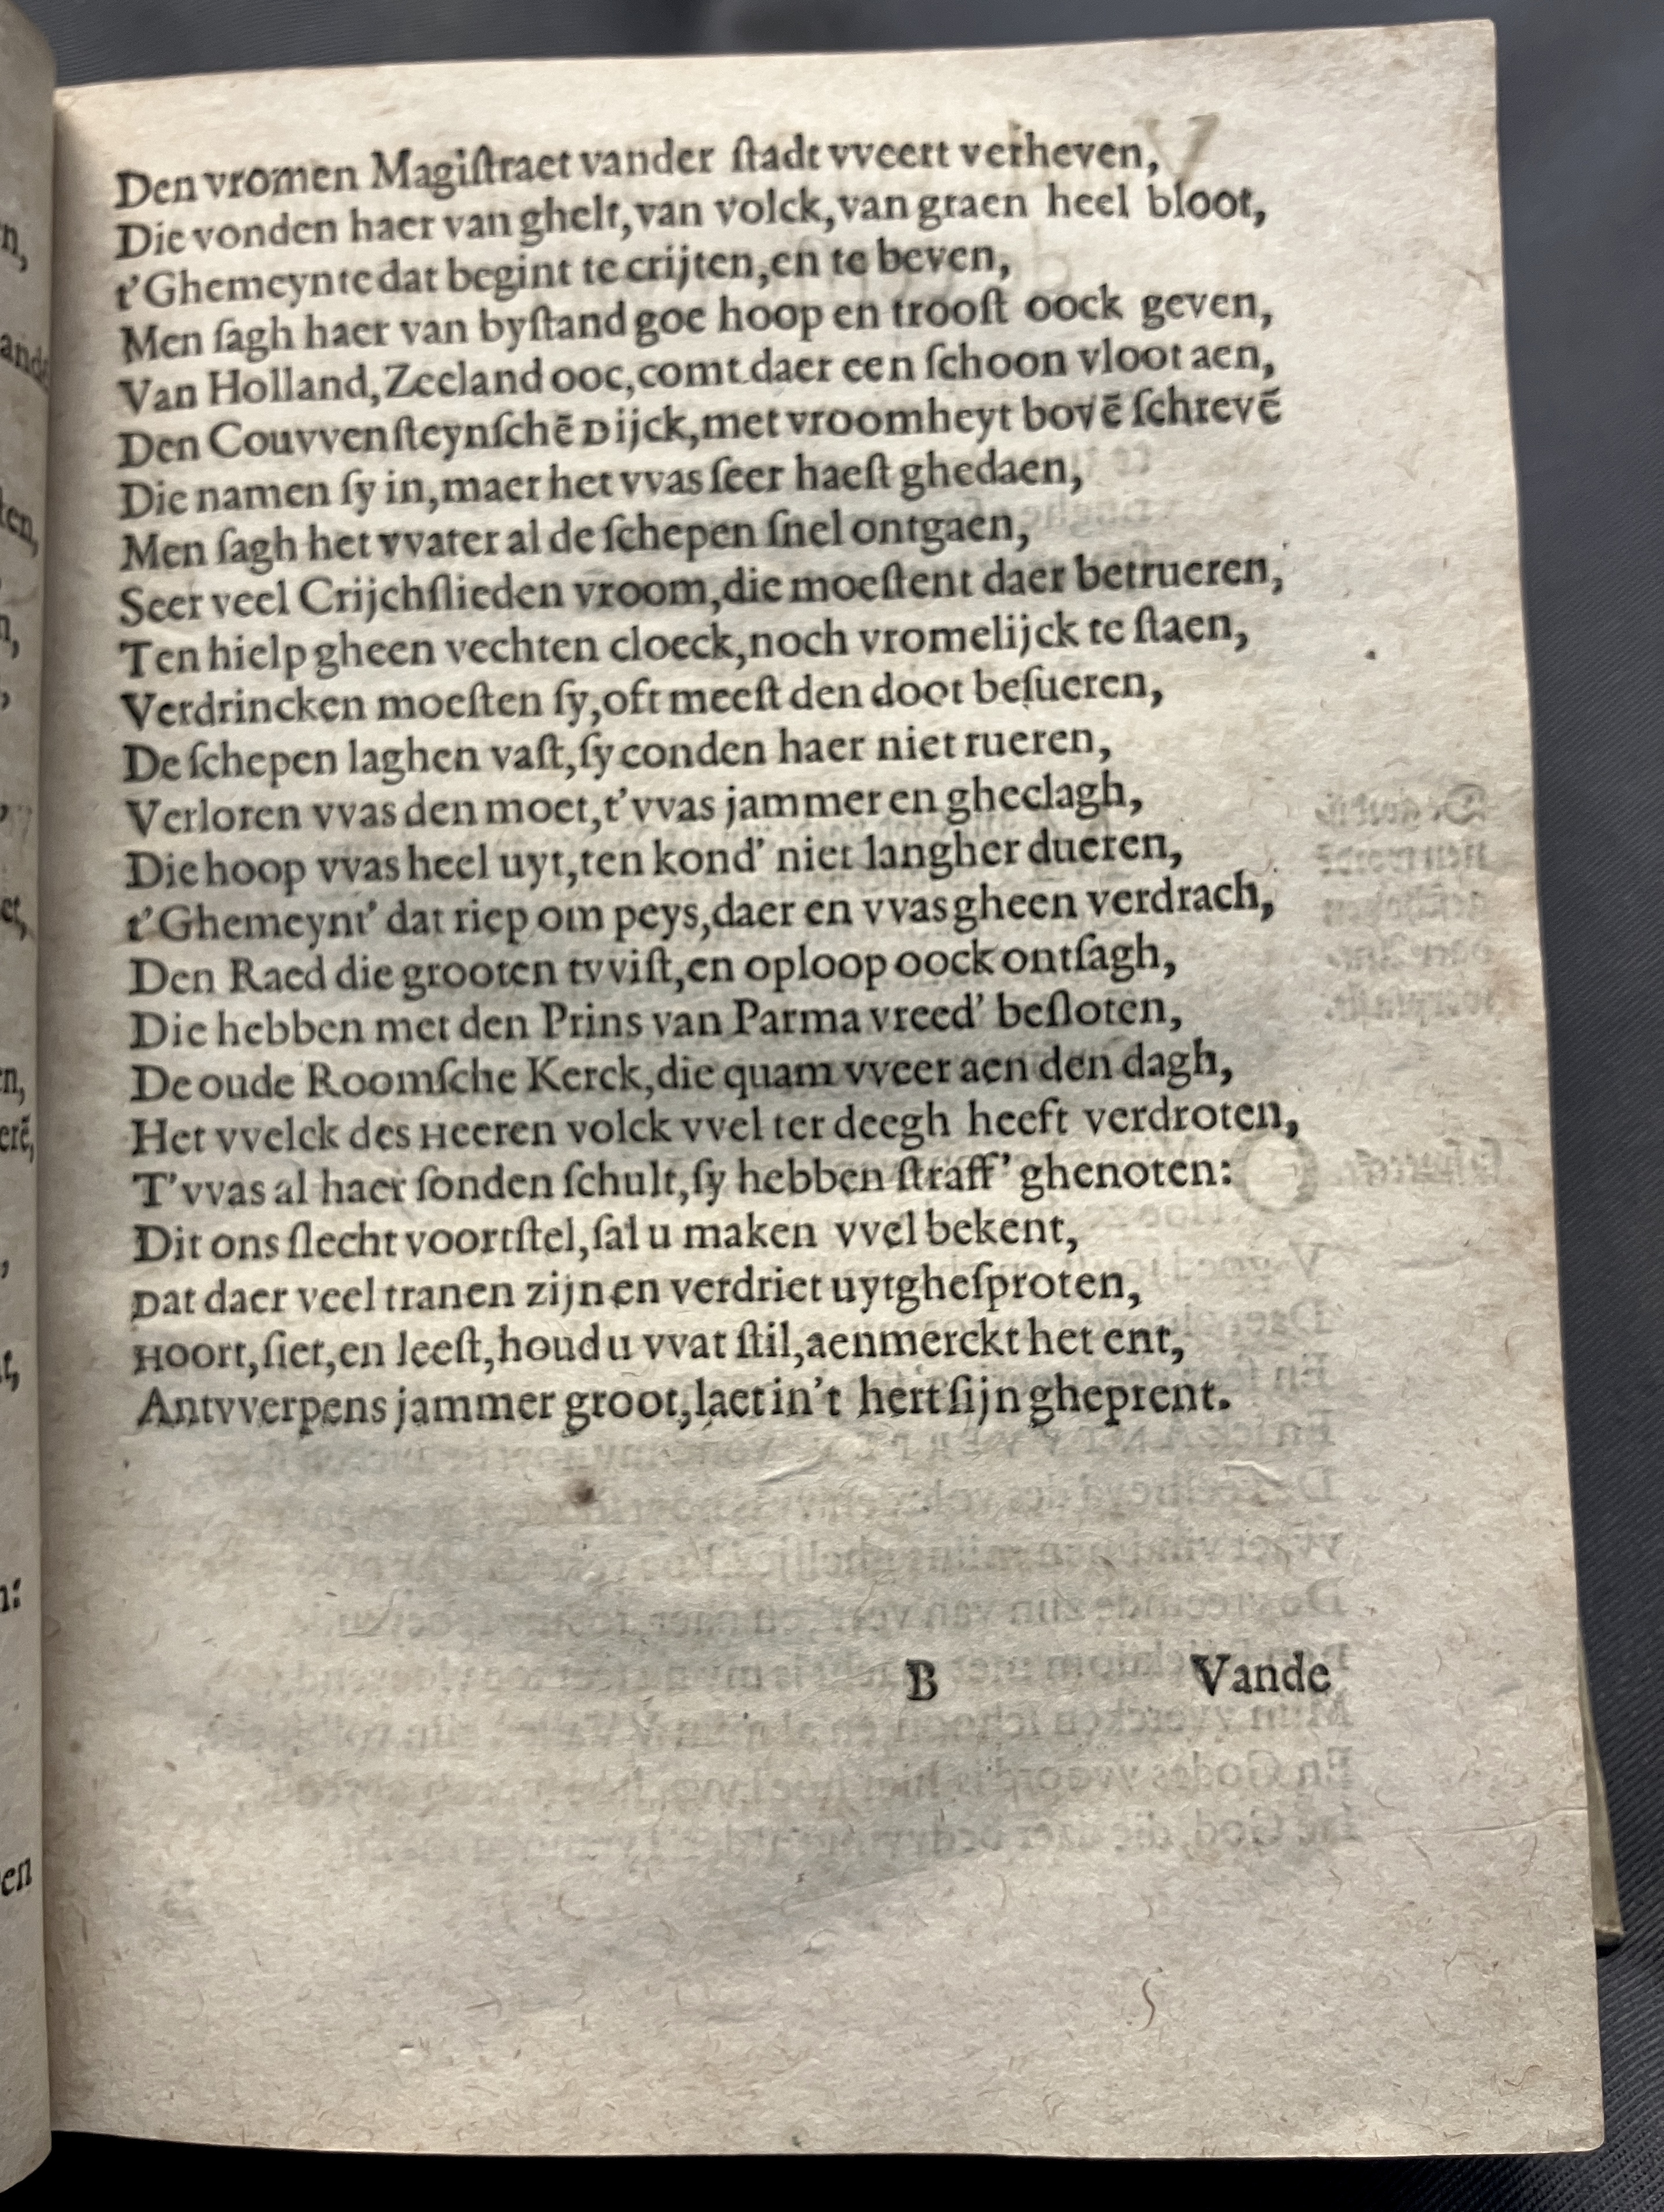 Den vromen Magiſtraet vander ſtadt vveert verheven,
Die vonden haer van ghelt, van volck, van graen heel bloot,
t'Ghemeynte dat begint te crijten, en te beven,
Men ſagh haer van byſtand goe hoop en trooſt oock geven,
Van Holland, Zeeland ooc, comt daer een ſchoon vloot aen,
Den Couvvenſteynſchē Dijck, met vroomheyt bovē ſchrevē
Die namen ſy in, maer het vvas ſeer haeſt ghedaen,
Men ſagh het vvater al de ſchepen ſnel ontgaen,
Seer veel Crijchſlieden vroom, die moeſtent daer betrueren,
Ten hielp gheen vechten cloeck, noch vromelijck te ſtaen,
Verdrincken moeſten ſy, oft meeſt den doot beſueren,
De ſchepen laghen vaſt, ſy conden haer niet rueren,
Verloren vvas den moet, t'vvas jammer en gheclagh,
Die hoop vvas heel uyt, ten kond' niet langher dueren,
t'Ghemeynt' dat riep om peys, daer en vvas gheen verdrach,
Den Raed die grooten tvviſt, en oploop oock ontſagh,
Die hebben met den Prins van Parma vreed' beſloten,
De oude Roomſche Kerck, die quam vveer aen den dagh,
Het vvelck des Heeren volck vvel ter deegh heeft verdroten,
T'vvas al haer ſonden ſchult, ſy hebben ſtraff' ghenoten:
Dit ons ſlecht voortſtel, ſal u maken vvel bekent,
Dat daer veel tranen zijn en verdriet uytgheſproten,
Hoort, ſiet, en leeſt, houd u vvat ſtil, aenmerckt het ent,
Antvverpens jammer groot, laet in't hert ſijn gheprent.
B Vande